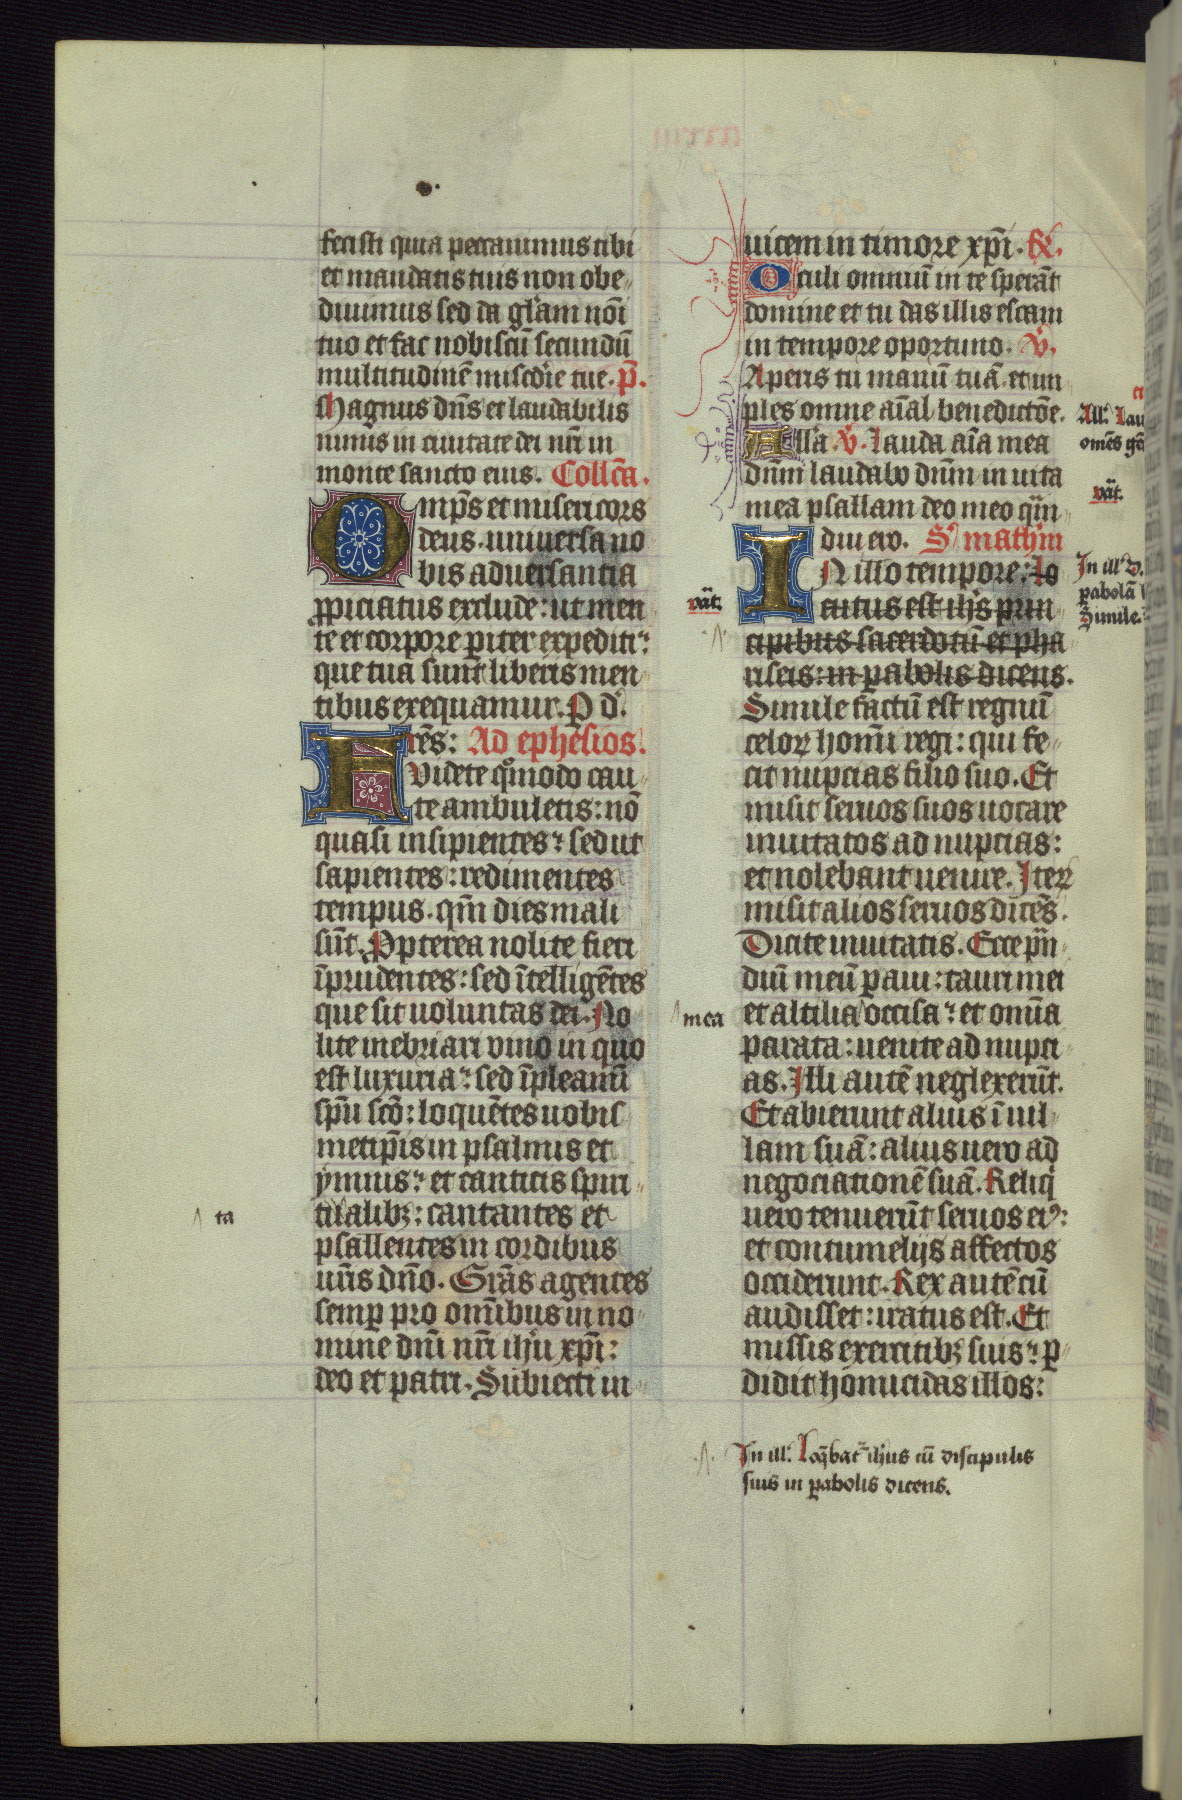 fecisti quia peccauimus tibi
et mandatis tuis non obe
diuimus sed da glam noi
tuo et fac nobiscū secundū
multitudinē misedie tue. p̄.
Magnus dn̄s et laudabilis
nimis in ciuitate dei nr̄i in
monte sancto eius. Collc̄a.
Omp̄s et misericors
deus. uniuersa no
bis aduersantia
ꝓpiciatus exclude: ut men
te et corpore pariter expediti:
que tua sunt liberis men
tibus exequamur. P d.
Frēs: Ad ephesios.
Videte quomodo cau
te ambuletis: nō
quasi insipientes: sed ut
sapientes: redimentes
tempus. qm̄ dies mali
sūt. Ppterea nolite fieri
īprudentes: sed ītelligētes
que sit uoluntas dei. No
lite inebriari vino in quo
est luxuria: sed īpleamī
spū sc̄o: loquētes uobis
metip̄is in psalmis et
ymnis: et canticis spiri
tualibꝫ: cantantes et
ta
psallentes in cordibus
ur̄is dn̄o. Grās agentes
semp pro omībus in no
mine dn̄i nr̄i ihū xp̄i:
deo et patri. Subiecti in
uicem in timore xp̄i.
Oculi omniū in te sperāt
domine et tu das illis escam
in tempore oportuno. V.
Aperis tu manū tuā et im
ples omne aīal benedictōe.
Alla. V. Lauda aīa mea
dn̄m laudabo dn̄m in uita
mea psallam deo meo q̄m
diu ero. S mathm
IN illo tempore: Lo
cutus est ihs prin
vāt.
cipibus sacerdotū et pha
riseis: in pabolis dicens.
Simile factū est regnū
celoꝝ homī regi: qui fe
cit nupcias filio suo. Et
misit seruos suos uocare
inuitatos ad nupcias:
et nolebant uenire. Iteꝝ
misit alios seruos dicēs.
Dicite inuitatis. Ecce pn̄
diū meū paui: tauri mei
et altilia occisa: et omīa
mea
parata: uenite ad nupci
as. Illi autē neglexerūt.
Et abierunt alius ī uil
lam suā: alius uero ad
negociationē suā. Reliq̄
uero tenuerūt seruos eiꝰ:
et contumelijs affectos
occiderunt. Rex autē cū
audisset: iratus est. Et
missis exercitibꝫ suis: p
didit homicidas illos:
In ill. Loq̄bat ihus cū discipulis
suis in pabolis dicens.
All. Lau
omēs gē
vāt.
In ill. d.
pabolā
Simile.